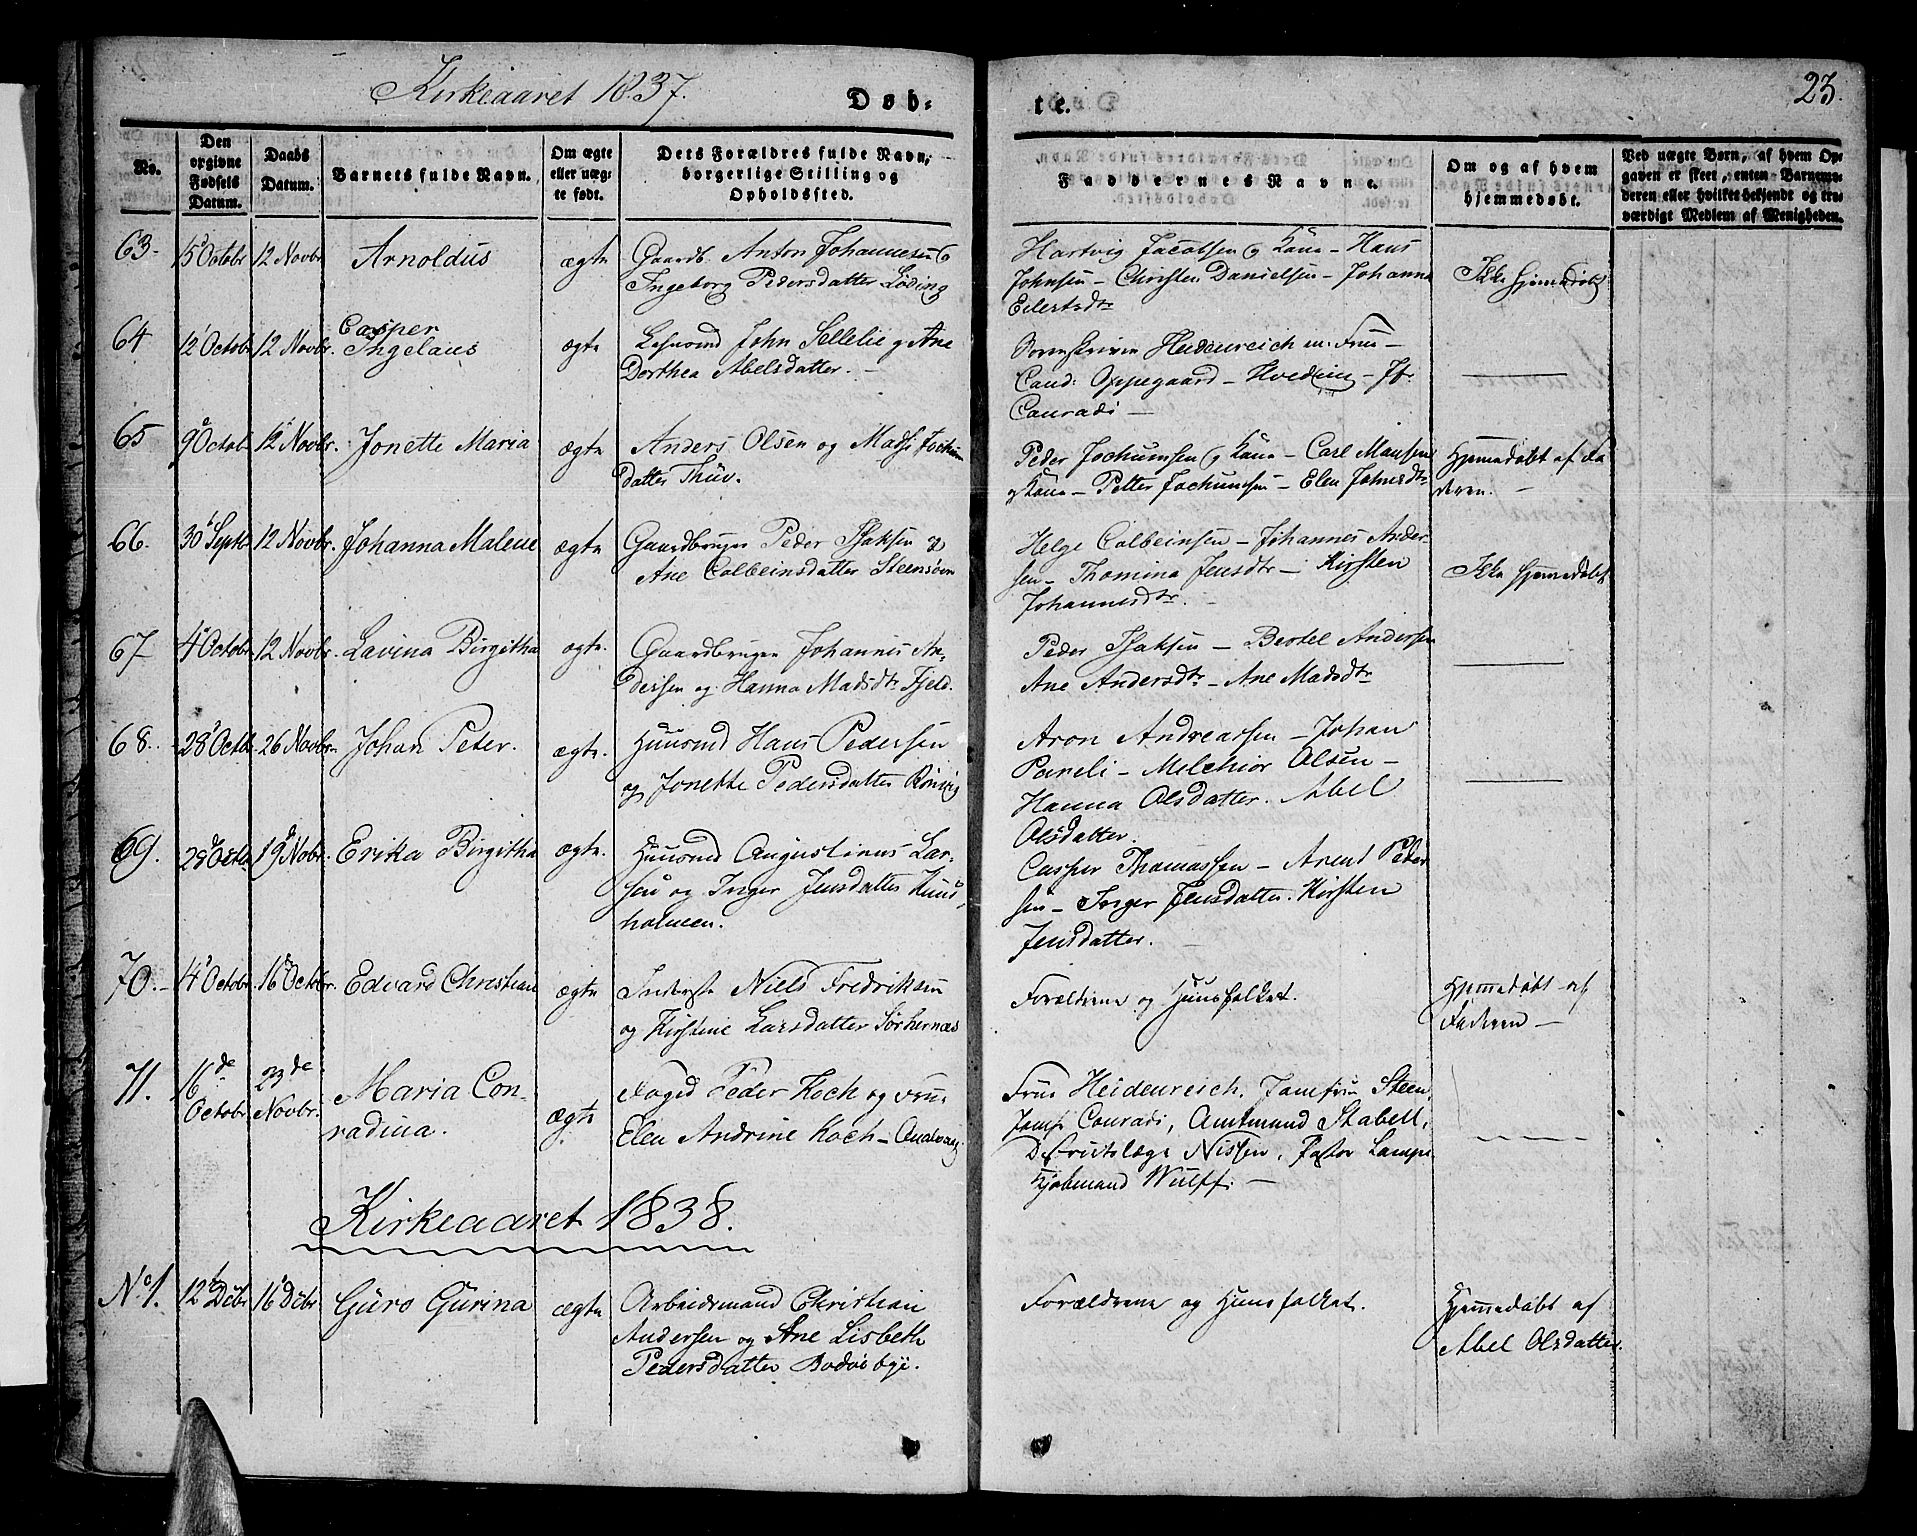 Kirkeaaret 1837.
Døb-
te.
23.
No.
Den
orgivne
Fødsels
Datum.
Daabs
Datum.
Barnets fulde Navn.
Om ægte
eller uæg-
te født.
Dets Forældres fulde Navn,
borgerlige Stilling og
Opholdssted.
Faddernes Navne.
Om og af hvem
hjemmedøbt.
Ved uægte Børn, af hvem Op-
gaven er skeet, enten Barnemo-
deren eller hvilket bekjendt og tro-
værdigt Medlem af Menigheden.
63. 15 Octobr 12 Novbr Arnoldus ægte
Gaardb. Anton Johannesen og
Ingeborg Pedersdatter Løding
Hartvig Jacobsen og Kone - Hans
Johnsen - Christen Danielsen - Johanna
Eilertsdtr
Ikke hjemmedøbt
64 12 Octobr 12 Novbr. Casper
Ingelaus ægte
John Sellelie og Ane
Dorthea Abelsdatter. -
Sorenskriver Heidenreich m. Frue -
Cand: Oppegaard - Hveding - Jfr.
Conradi -
65 9 Octob 12 Novbr. Jonette Maria ægte
Anders Olsen og Mads Jochum
datter Thuv.
Peder Jochumsen og Kone - Carl Monsen
og Kone - Petter Jochumsen - Elen Johnsdtr
Hjemmedøbt af Fa
deren. -
66. 30 Septb 12 Novbr. Johanna Malene ægte
Gaardbruger Peder Isaksen og
Ane Colbeinsdatter Steensøen
Helge Colbeinsen - Johannes Ander-
sen - Thomina Jensdtr - Kirsten
Johannesdtr.
Ikke hjemmedøbt
67 4 Octobr. 12 Novbr. Lavina Birgitha ægte.
Gaardbruger Johannes An-
dersen og Hanna Madsdtr Fjeld.
Peder Isaksen - Bertel Andersen
Ane Andersdtr - Ane Madsdtr
68. 28 Octb. 26 Novbr. Johan Peter. ægte.
Huusmd Hans Pedersen
og Jonette Pedersdatter Rønvig
Aron Andreassen - Johan
Pareli - Melchior Olsen -
Hanna Olsdatter. Abel
Olsdatter.
69. 28 Octb. 19 Novbr. Erika Birgitha ægte.
Huusmd Augustinus Lar-
sen og Inger Jensdatter Huus
holmen.
Casper Thomassen - Arent Peder
sen - Inger Jensdatter. Kirsten
Jensdatter.
70. - 14 Octobr. 16 Octbr. Edvard Christian ægte
Inderste Niels Fredriksen
og Kirstine Larsdatter Sørhernæs
Forældrene og Huusfolket.
Hjemmedøbt af
Faderen -
71. 16de
Octobr. 23de
Novbr. Maria Con-
radina. ægte
Foged Peder Koch og Frue
Elen Andrine Koch -
Frue Heidenreich. Jomfru Steen,
Jomf. Conradi, Amtmand Stabell,
Districtslæge Nissen, Pastor Lampe
Kjøbmand Wulff. -
Kirkeaaret 1838.
No 1. 12 Dcbr 16 Dcbr. Guro Gurina ægte
Arbeidsmand Christian
Andersen og Ane Lisbeth
Pedersdatter Bodøe bye.
Forældrene og Huusfolket.
Hjemmedøbt af
Abel Olsdatter.